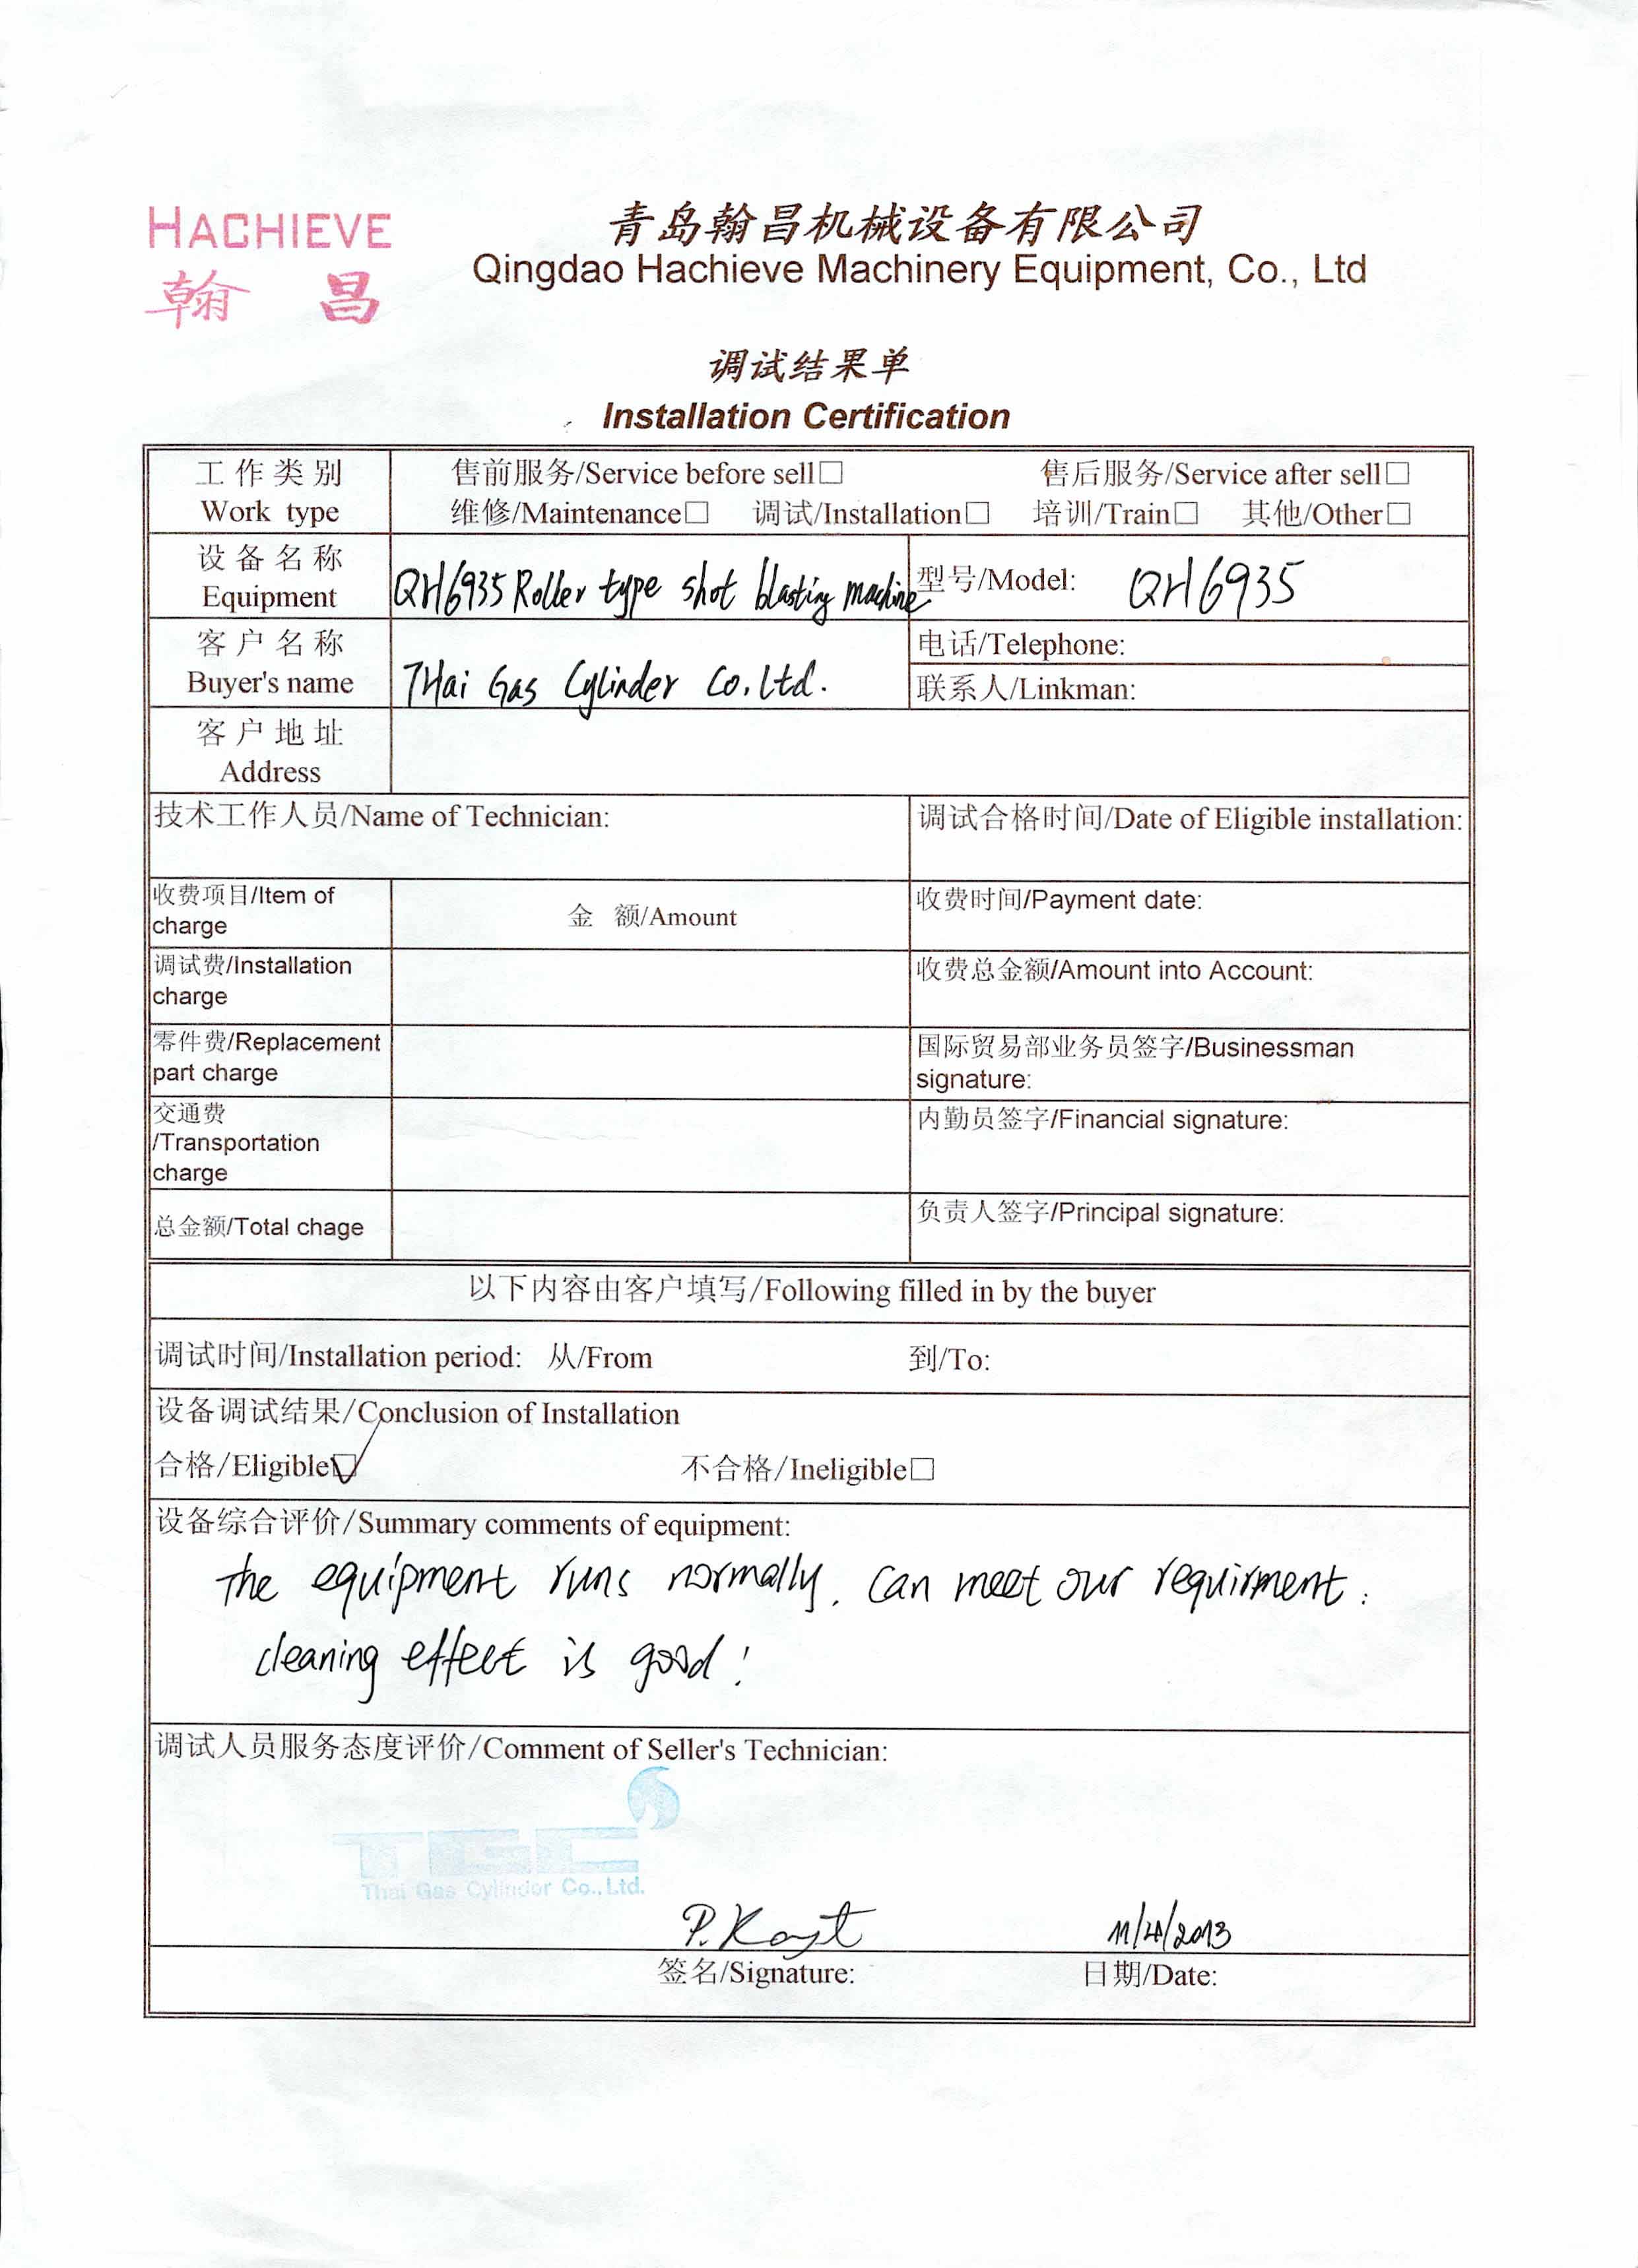 HACHIEVE
翰 昌
青岛翰昌机械设备有限公司
Qingdao Hachieve Machinery Equipment, Co., Ltd
调试结果单
Installation Certification
工作类别
Work type
售前服务/Service before sell□ 售后服务/Service after sell□
维修/Maintenance□ 调试/Installation□ 培训/Train□ 其他/Other□
设备名称
Equipment
QH6935 Roller type shot blasting machine
型号/Model: QH6935
客户名称
Buyer's name
THai Gas Cylinder Co.Ltd.
电话/Telephone:
联系人/Linkman:
客户地址
Address
技术工作人员/Name of Technician:
调试合格时间/Date of Eligible installation:
收费项目/Item of
charge
金 额/Amount
收费时间/Payment date:
调试费/Installation
charge
收费总金额/Amount into Account:
零件费/Replacement
part charge
国际贸易部业务员签字/Businessman
signature:
交通费
/Transportation
charge
内勤员签字/Financial signature:
总金额/Total chage
负责人签字/Principal signature:
以下内容由客户填写/Following filled in by the buyer
调试时间/Installation period: 从/From 到/To:
设备调试结果/Conclusion of Installation
合格/Eligible☑ 不合格/Ineligible□
设备综合评价/Summary comments of equipment:
The equipment runs normally. can meet our requirment.
cleaning effect is good!
调试人员服务态度评价/Comment of Seller's Technician:
TGC
Thai Gas Cylinder Co.,Ltd.
11/4/2013
签名/Signature: 日期/Date: